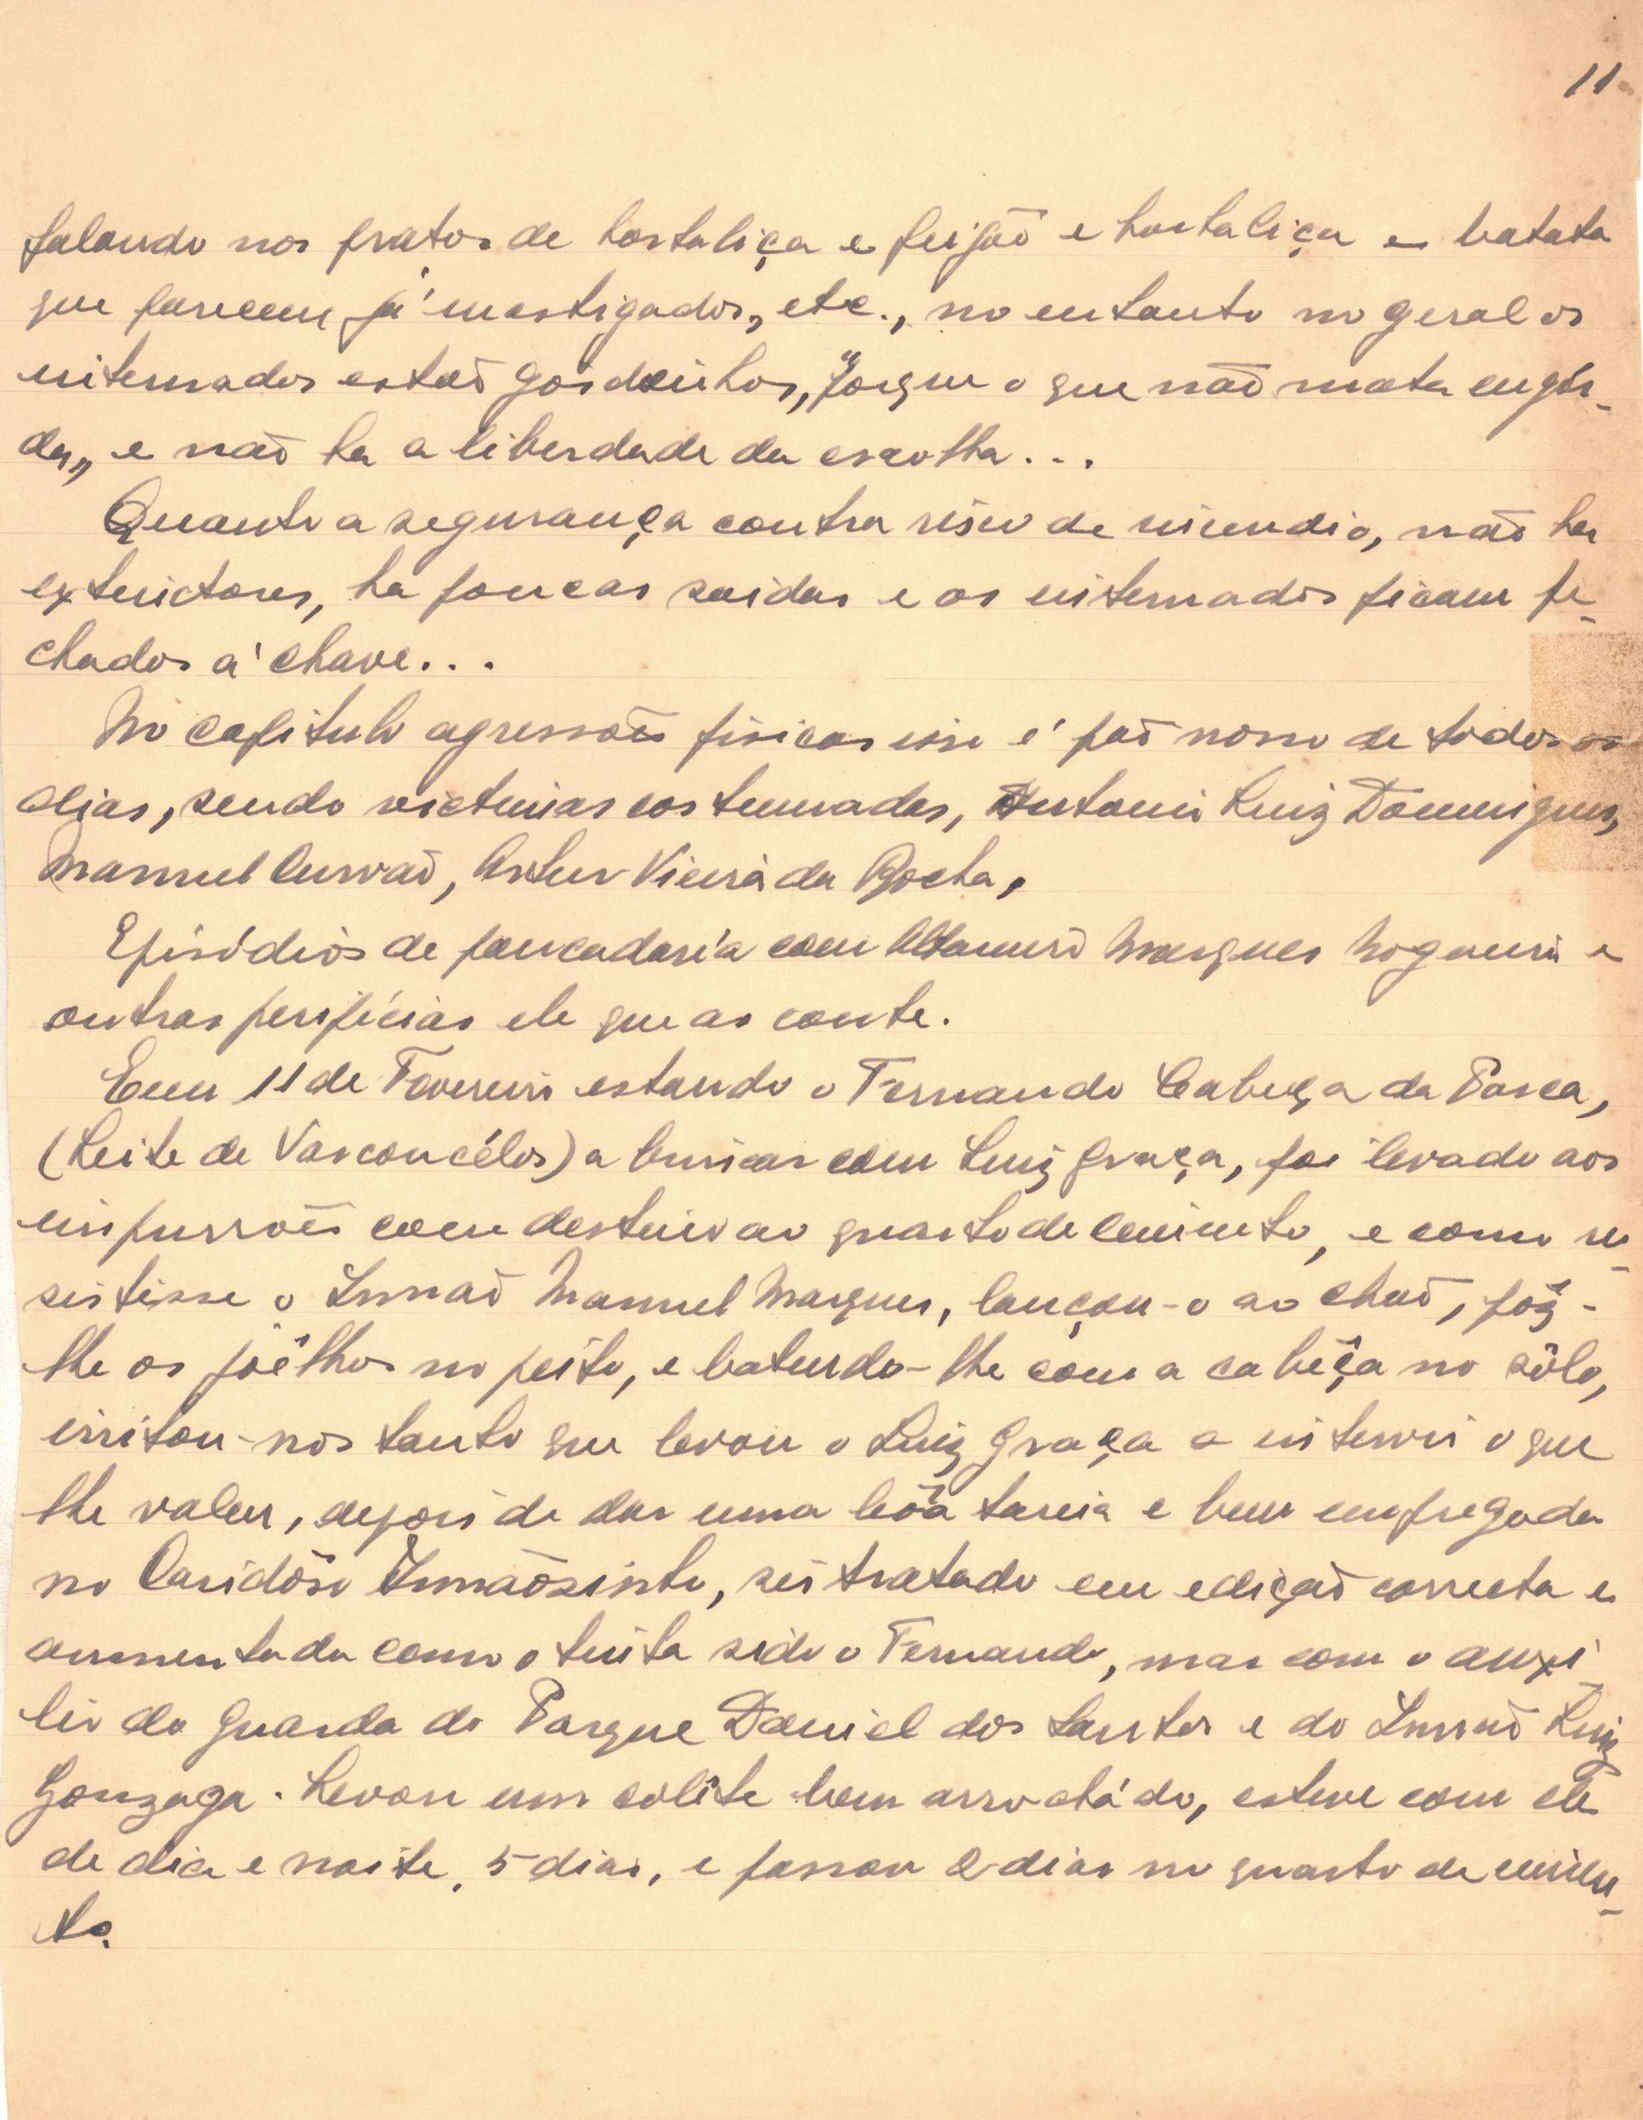 11
falando nos pratos de hortaliça e feijaõ e hortaliça e batata
que parecem já mastigados, etc., no entanto no geral os
internados estaõ gordinhos, "porque o que naõ mata engor-
da„ e naõ ha a liberdade da escolha...
Quanto a segurança contra risco de incendio, naõ ha
extinctores, ha poucas saidas e os internados ficam fe-
chados á chave...
No capitulo agressoẽs fisicas isso é paõ nosso de todos os
dias, sendo victimas costumadas, Antonio Luiz Domingues,
Manuel Curvaõ, Artur Vieira da Rocha,
Episódios de pancadaría com Altamiro Marques Nogueira e
outras peripécias ele que as conte.
Em 11 de Fevereiro estando o Fernando Cabeça da Parca,
(Leite de Vasconcélos) a brincar com Luiz Graça, foi levado aos
impurroẽs com destino ao quarto de cimento, e como re-
sistisse o Irmaõ Manuel Marques, lançou-o ao chaõ, pôz-
lhe os joêlhos no peito, e batendo-lhe com a cabêça no sôlo,
irritou-nos tanto que levou o Luiz Graça a intervir o que
lhe valeu, depois de dar uma bôa tareia e bem empregada
no Caridôso Irmãosinho, ser tratado em ediçaõ correcta e
aumentada como o tinha sido o Fernando, mas com o auxi-
lio do Guarda do Parque Daniel dos Santos e do Irmaõ Luiz
Gonzaga. Levou um colête bem arrochádo, esteve com ele
de dia e noite, 5 dias, e passou 2 dias no quarto de cimen-
to.